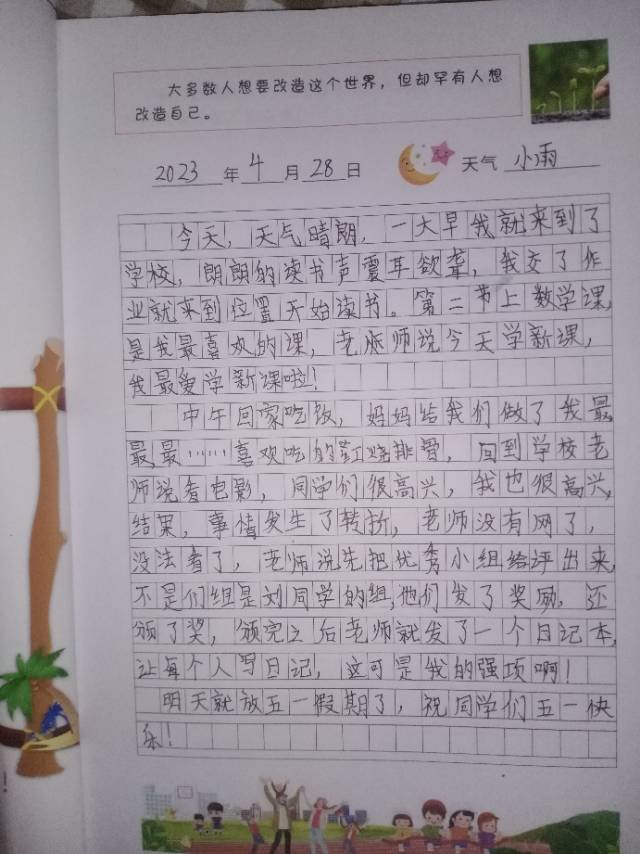 大多数人想要改造这个世界，但却罕有人想
改造自己。
2023 年 4 月 28 日 天气 小雨
今天，天气晴朗，一大早我就来到了
学校，朗朗的读书声震耳欲聋，我交了作
业就来到位置开始读书。第二节上数学课，
是我最喜欢的课，老师说今天学新课，
我最爱学新课啦！
中午回家吃饭，妈妈给我们做了我最
最最……喜欢吃的红烧排骨，回到学校老
师说看电影，同学们很高兴，我也很高兴，
结果，事情发生了转折，老师没有网了，
没法看了，老师说先把优秀小组给评出来，
不是们组是刘同学的组，他们发了奖励，还
颁了奖，颁完之后老师就发了一个日记本，
让每个人写日记，这可是我的强项啊！
明天就放五一假期了，祝同学们五一快
乐！